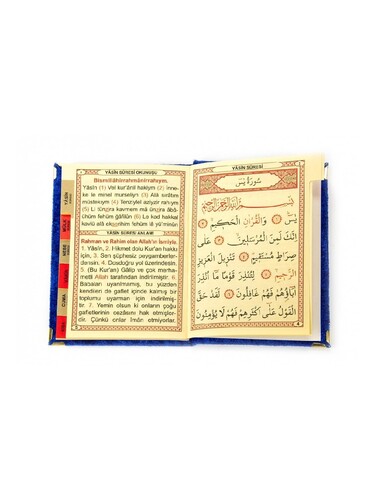 YÂSÎN SÛRESİ OKUNUŞU
Bismillâhirrahmânirrahıym.
Yâsîn (1) Vel kur'ânil hakîym (2) inne-
ke le minel murselîyn (3) Alâ sırâtım
mustekîym (4) Tenzîylel azîyzir rahıym
(5) Li tünzira kavmem mâ ünzira âbâ-
ühüm fehüm ğâfilûn (6) Le kad hakkal
kavlü alâ ekserihim fehüm lâ yü'minûn
YÂSÎN SÛRESİ ANLAMI
Rahman ve Rahim olan Allah'ın İsmiyle.
1. Yâsîn, 2. Hikmet dolu Kur'an hakkı
için, 3. Sen şüphesiz peygamberler-
densin. 4. Dosdoğru yol üzerindesin.
5. (Bu Kur'an) Gâlip ve çok merha-
metli Allah tarafından indirilmiştir. 6.
Babaları uyarılmamış, bu yüzden
kendileri de gaflet içinde kalmış bir
toplumu uyarman için indirilmiş-
tir. 7. Yemin olsun ki onların çoğu
gafletlerinin cezasını hak etmişler-
dir. Çünkü onlar îman etmiyorlar.
YÂSİN
MÜLK
NEBE
CUMA
YÂSÎN SÛRESİ
سُورَةُ يٰسٓ
بِسْمِ اللّٰهِ الرَّحْمٰنِ الرَّحِيمِ
يٰسٓ ﴿١﴾ وَالْقُرْاٰنِ الْحَكِيمِ ﴿٢﴾
اِنَّكَ لَمِنَ الْمُرْسَلِينَ ﴿٣﴾ عَلٰى
صِرَاطٍ مُسْتَقِيمٍ ﴿٤﴾ تَنْزِيلَ الْعَزِيزِ
الرَّحِيمِ ﴿٥﴾ لِتُنْذِرَ قَوْمًا مَٓا اُنْذِرَ
اٰبَٓاؤُ۬هُمْ فَهُمْ غَافِلُونَ ﴿٦﴾ لَقَدْ حَقَّ
الْقَوْلُ عَلٰٓى اَكْثَرِهِمْ فَهُمْ لَا يُؤْمِنُونَ